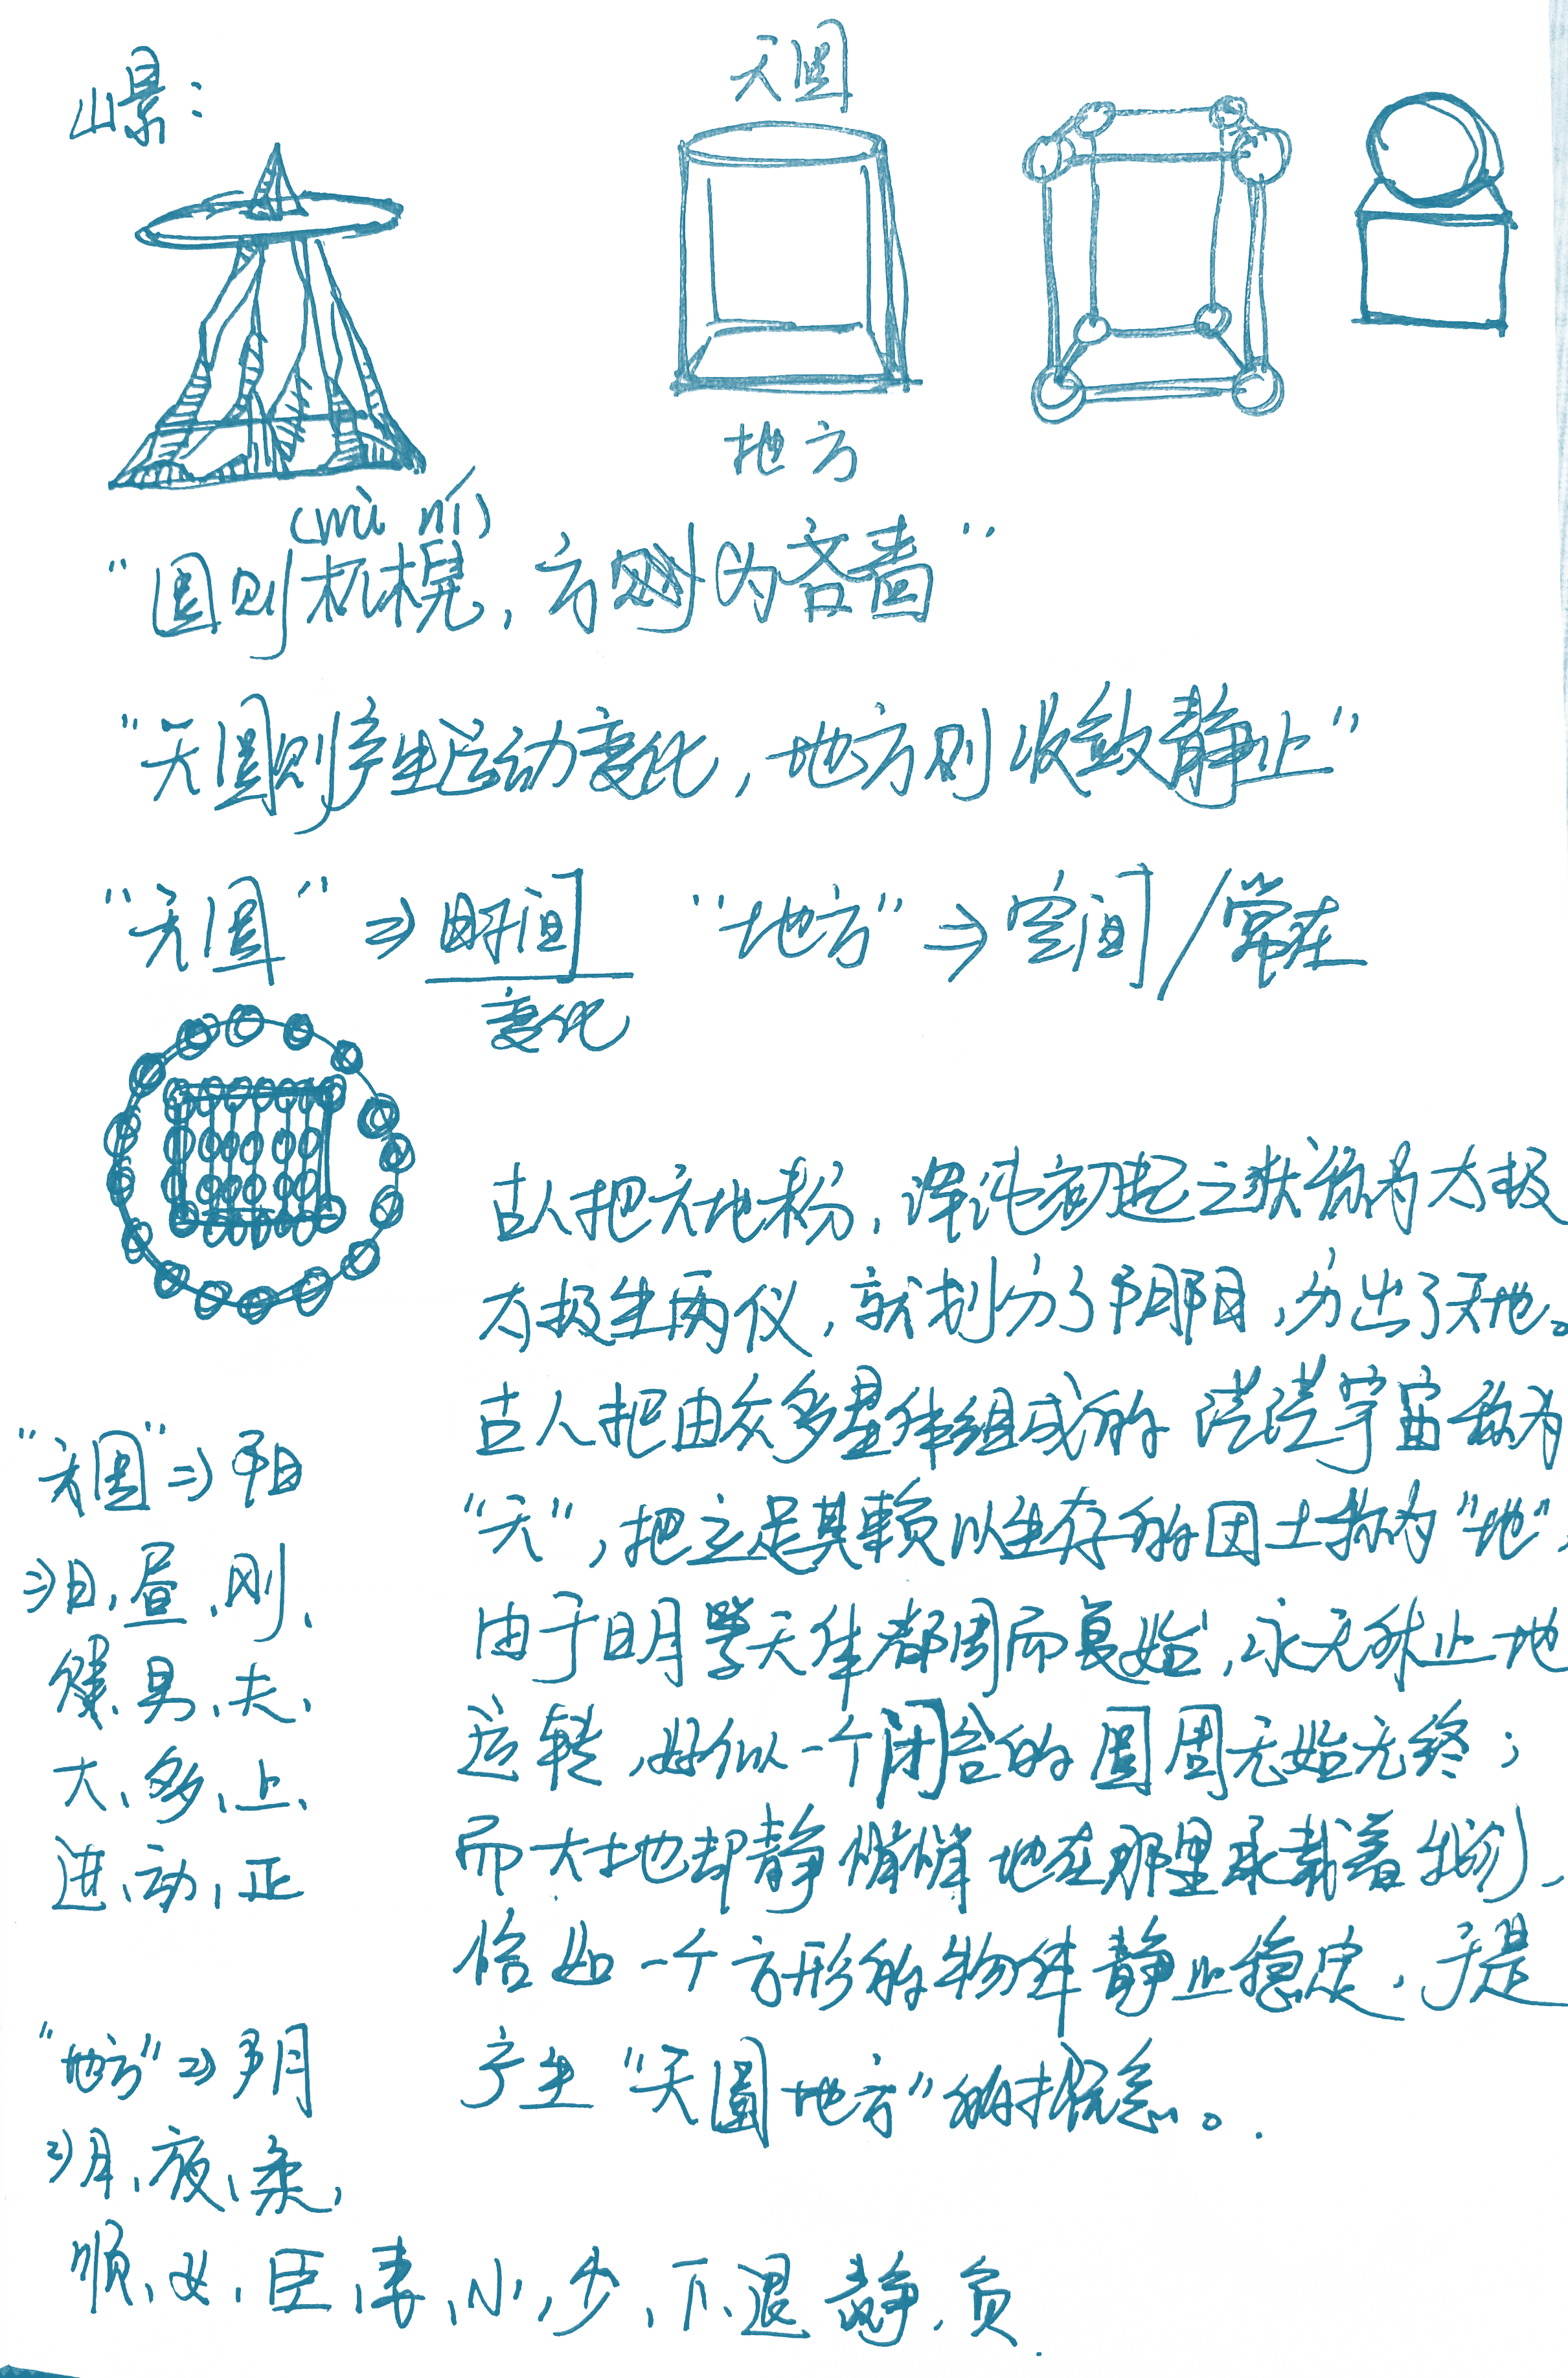 山景：
天圆
地方
(wù ní)
“圆则杌棿，方则为吝啬”
“天圆则产生运动变化，地方则收敛静止”
“天圆” ⇒ 时间 “地方” ⇒ 空间/常在
变化
古人把天地未分，浑沌初起之状称为太极
太极生两仪，就划分了阴阳，分出了天地。
古人把由众多星体组成的 茫茫宇宙称为
“天”，把立足其赖以生存的田土称为“地”，
由于日月等天体都周而复始，永无休止地
运转，好似一个闭合的圆周无始无终；
而大地却静悄悄地在那里承载着我们，
恰如一个方形的物体静止稳定，于是
产生“天圆地方”的概念。
“天圆” ⇒ 阳
⇒日、昼、刚、
健、男、夫、
大、多、上、
进、动、正
“地方” ⇒ 阴
⇒月、夜、柔、
顺、女、臣、妻、小、少、下、退 静、负